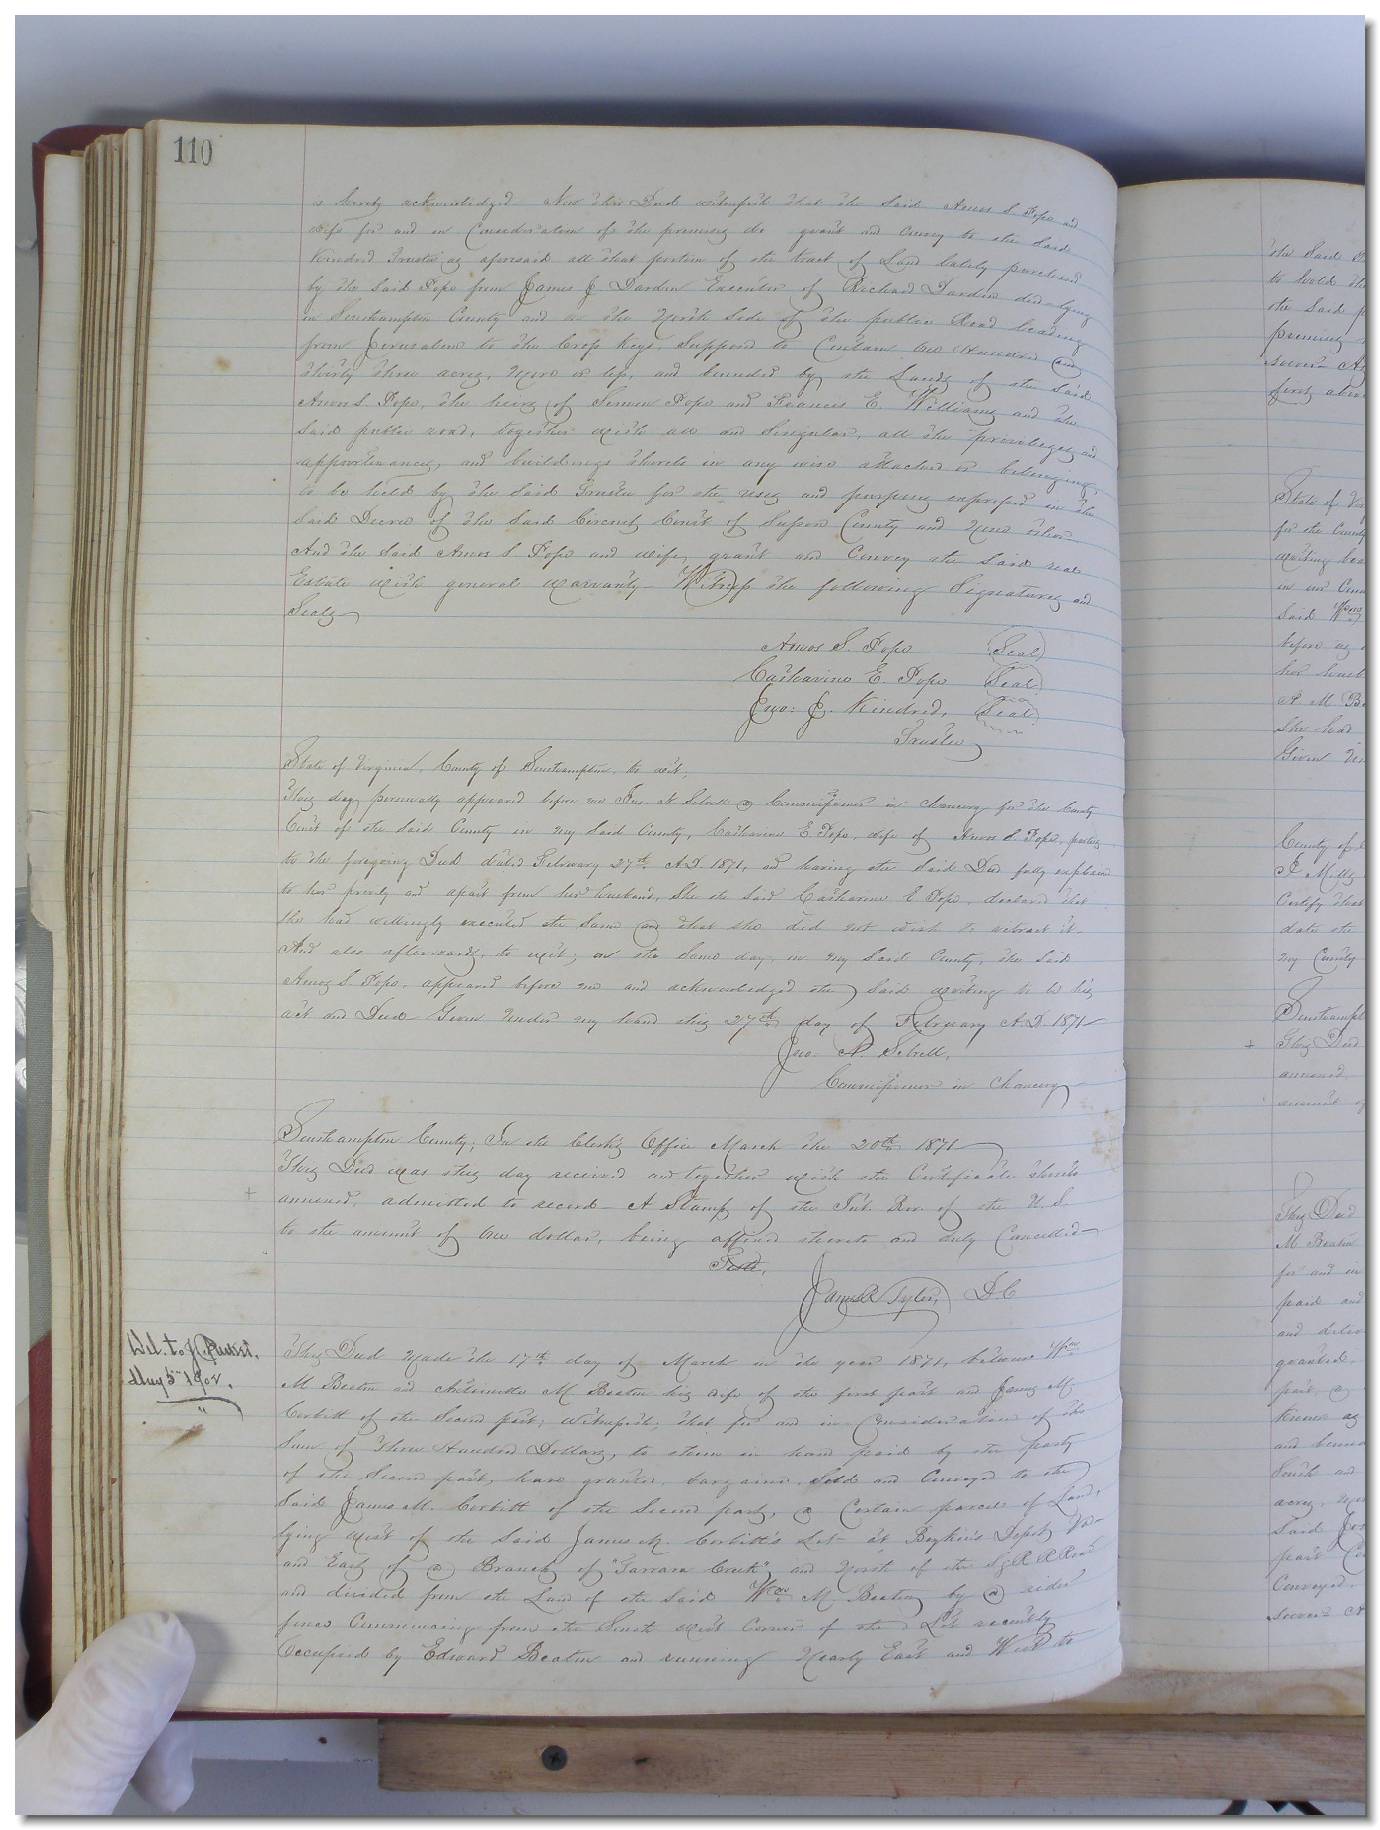 110
is hereby acknowledged Now this Deed witnesseth that the said Amos S. Pope and
wife for and in Consideration of the premises do grant and Convey to the said
Kindred Trustee as aforesaid all that portion of the tract of Land lately purchased
by the said Pope from James J Darden Executor of Richard Darden decd lying
in Southampton County and on the North side of the public Road leading
from Jerusalem to the Cross Keys. Supposed to Contain One Hundred and
thirty three acres, more or less, and bounded by the Lands of the said
Amos S. Pope, the heirs of Simon Pope and Francis E. Williams and the
said public road, together with all and singular, all the privileges and
appurtenances, and buildings thereto in any wise attached or belonging
to be held by the said Trustee for the uses and purposes expressed in the
said Decree of the said Circuit Court of Sussex County and none other
And the said Amos S Pope and wife, grant and Convey the said real
Estate with general warranty Witness the following Signatures and
Seals
Amos S. Pope (Seal)
Catharine E. Pope (Seal)
Jno: J. Kindred, (Seal)
Trustee
State of Virginia, County of Southampton, to wit,
This day personally appeared before me Jno. N. Sebrell a Commissioner in Chancery for the County
Court of the said County in my said County, Catharine E Pope, wife of Amos S. Pope, parties
to the foregoing Deed dated February 27th A.D. 1871, and having the said Deed fully explained
to her privily and apart from her husband, she the said Catharine E Pope, declared that
she had willingly executed the same and that she did not wish to retract it.
And also afterwards, to wit; on the same day, in my said County, the said
Amos S. Pope, appeared before me and acknowledged the said writing to be his
act and Deed Given under my hand this 27th day of February A.D. 1871
Jno. N. Sebrell,
Commissioner in Chancery
Southampton County; In the Clerk's Office March the 20th 1871
This Deed was this day received and together with the Certificate thereto
annexed, admitted to record A Stamp of the Int. Rev. of the U. S.
to the amount of One dollar, being affixed thereto and duly Cancelled
Teste,
James R Tyler, D.C
Del. to
Aug 5th 1902.
This Deed Made the 17th day of March in the year 1871, between Wm
M Beaton and Antoinette M Beaton his wife of the first part and James M
Corbitt of the Second part; witnesseth; that for and in Consideration of the
Sum of Three Hundred Dollars, to them in hand paid by the party
of the Second part, have granted, bargained, Sold and Conveyed to the
said James M. Corbitt of the Second party, a Certain parcel of Land,
lying West of the said James M. Corbitt's Lot at Boykin's Depot Va
and East of a Branch of "Tarrara Creek" and North of the S & R R Road
and divided from the Land of the said Wm M. Beaton by a
fence Commencing from the South West Corner of the Lot recently
Occupied by Edward Beaton and running Nearly East and West to
the Said
to hold the
the Said
premises
first above
State of Vir
for the County
writing
said Wm
before
A M Be
She had
Given
County of
Certify that
date the
my County
Southampt
This Deed
annexed,
amount of
This Deed
M Beaton
for and in
paid and
and deliv
granted,
part, a
Known as
South and
acres, more
Said
part
Conveyed,